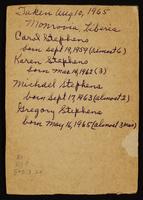 Taken Aug 10, 1965
Monrovia, Liberia
Carol Stephens
born Sept 19, 1959 (almost 6)
Karen Stephens
born Mar 14, 1962 (3)
Michael Stephens
born Sept 17, 1963 (almost 2)
Gregory Stephens
born May 16, 1965 (almost 3 mos)